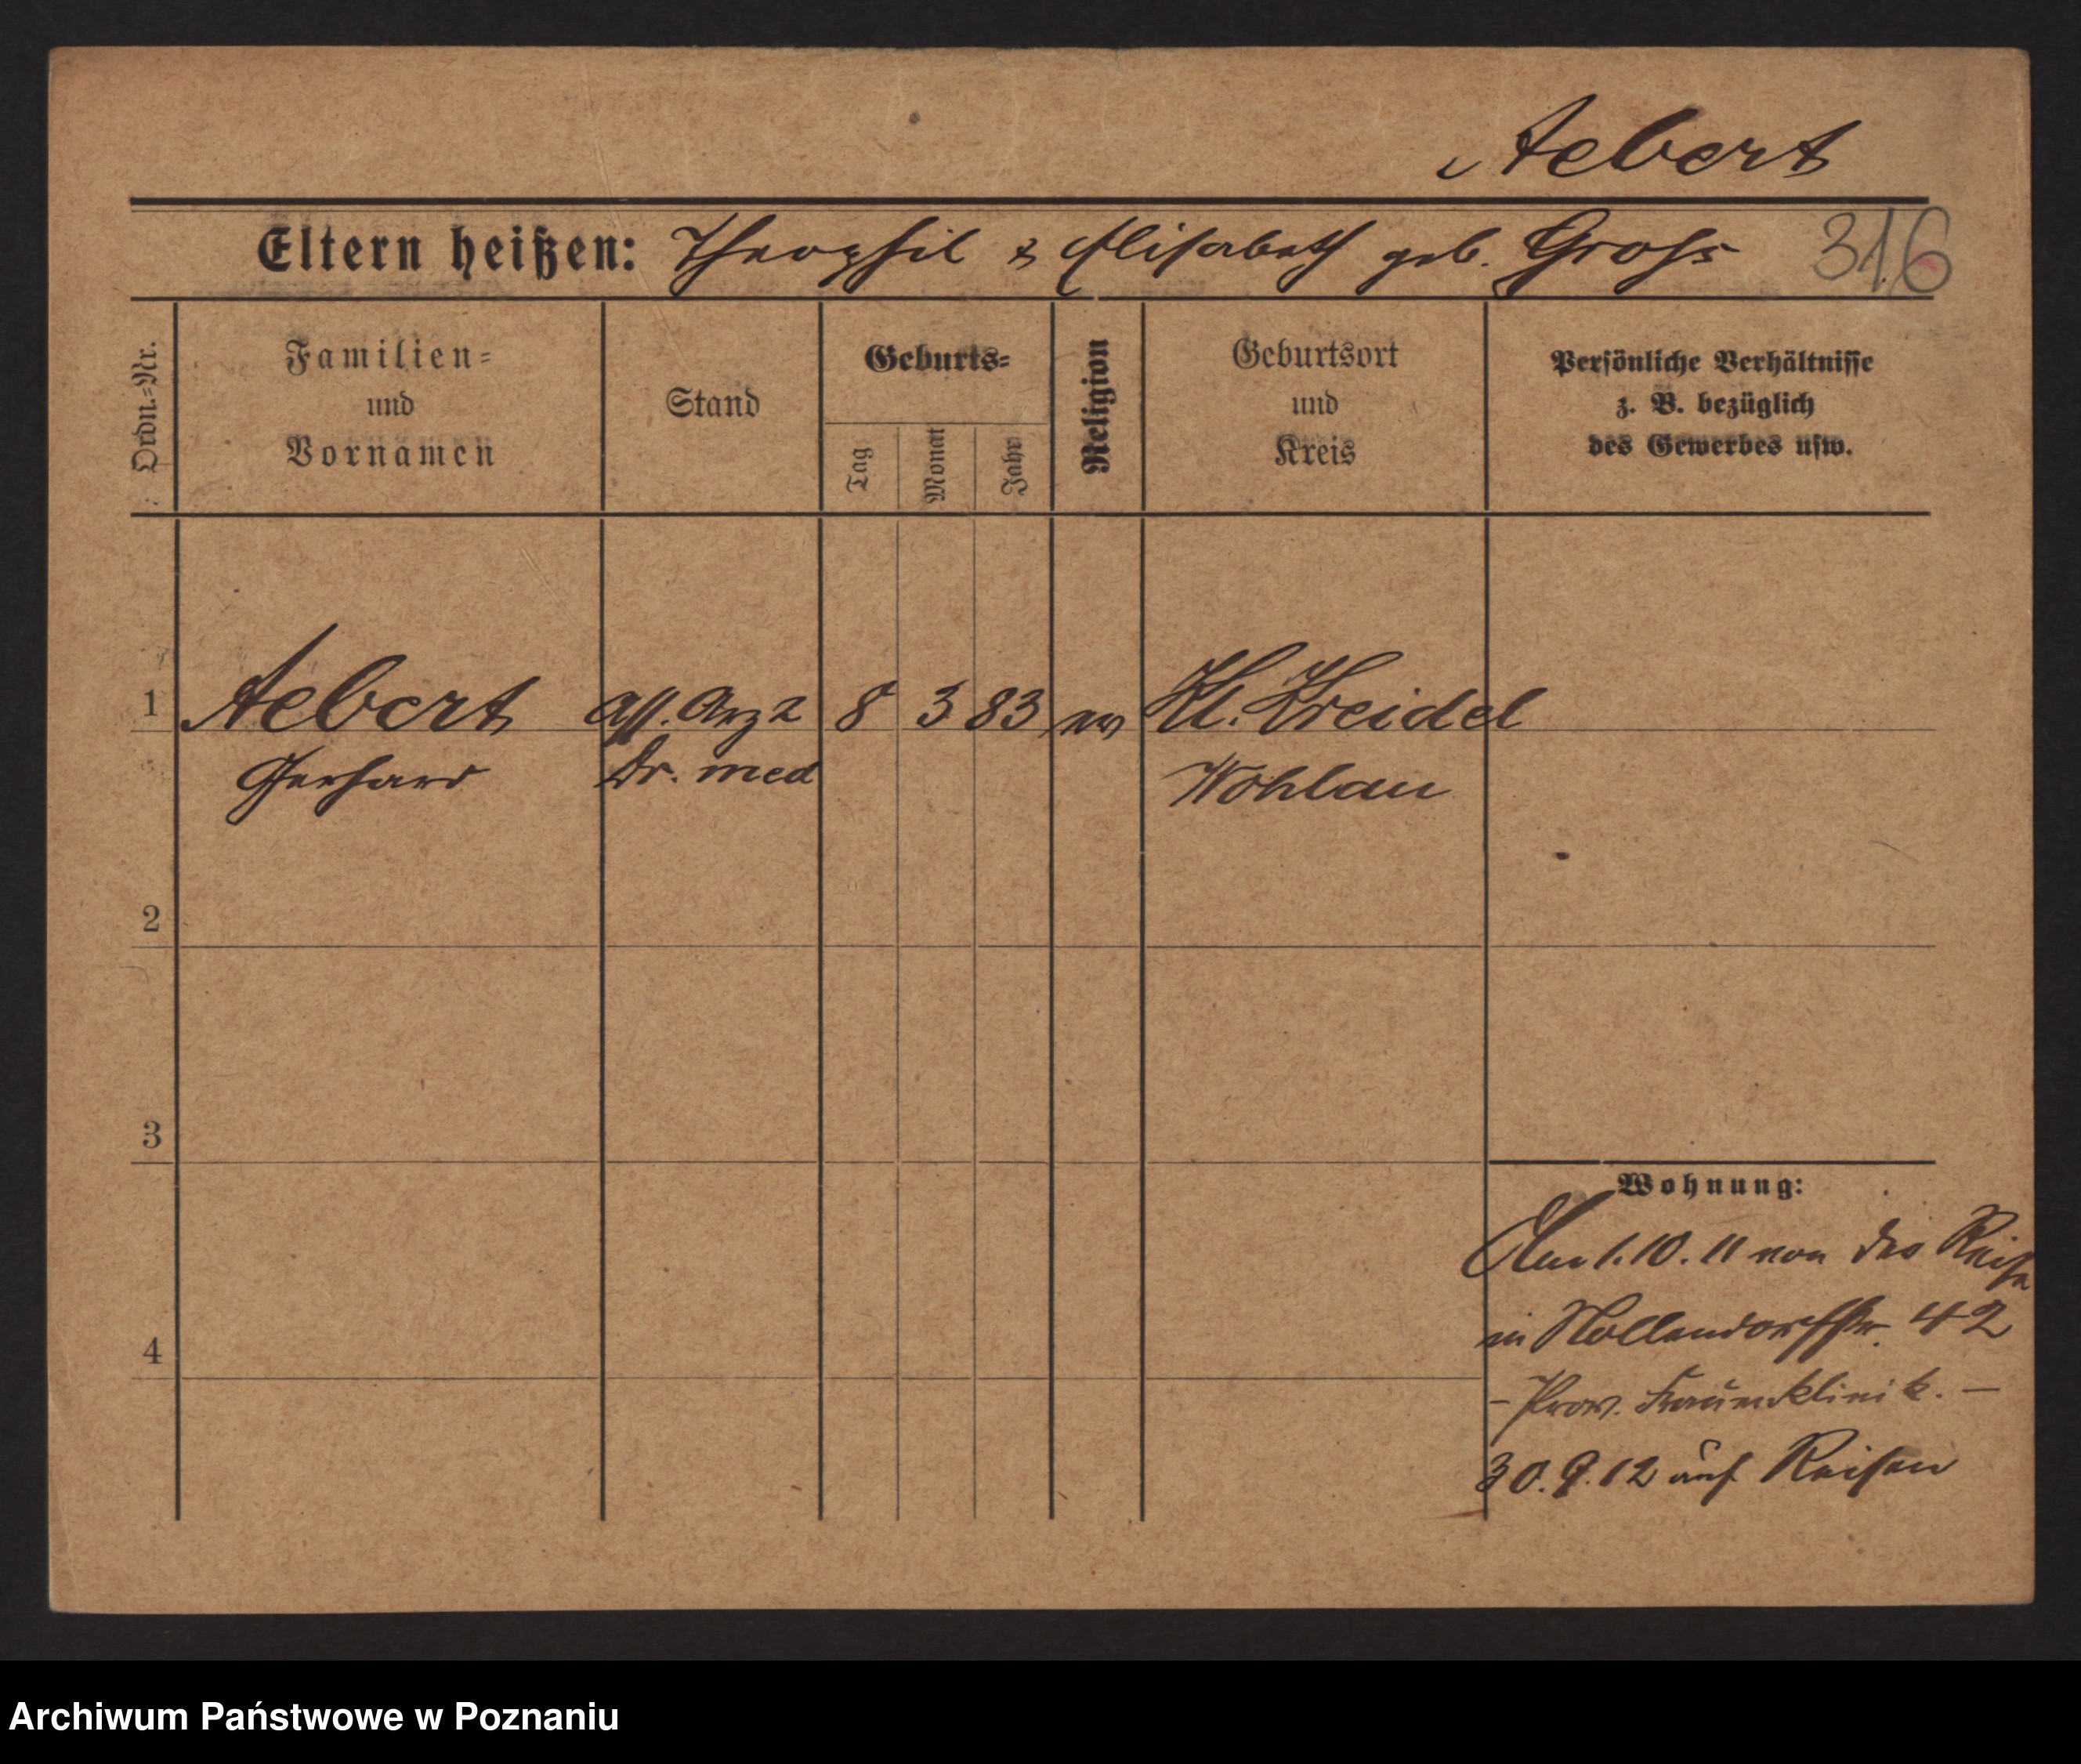 Aebert
Eltern heißen: Theophil & Elisabeth geb. Gross 31.6
Ordn.-Nr.
Familien-
und
Vornamen
Stand
Geburts-
Tag
Monat
Jahr
Religion
Geburtsort
und
Kreis
Persönliche Verhältnisse
z. B. bezüglich
des Gewerbes usw.
1 Aebert Ass. Arzt 8 3 83 ev Kl. Kreidel
Gerhard Dr. med Wohlau
2
3
4
Wohnung:
Am 1.10.11 von der Reise
in Nollendorffstr. 42
- Prov. Frauenklinik. -
30.9.12 auf Reisen
Archiwum Państwowe w Poznaniu